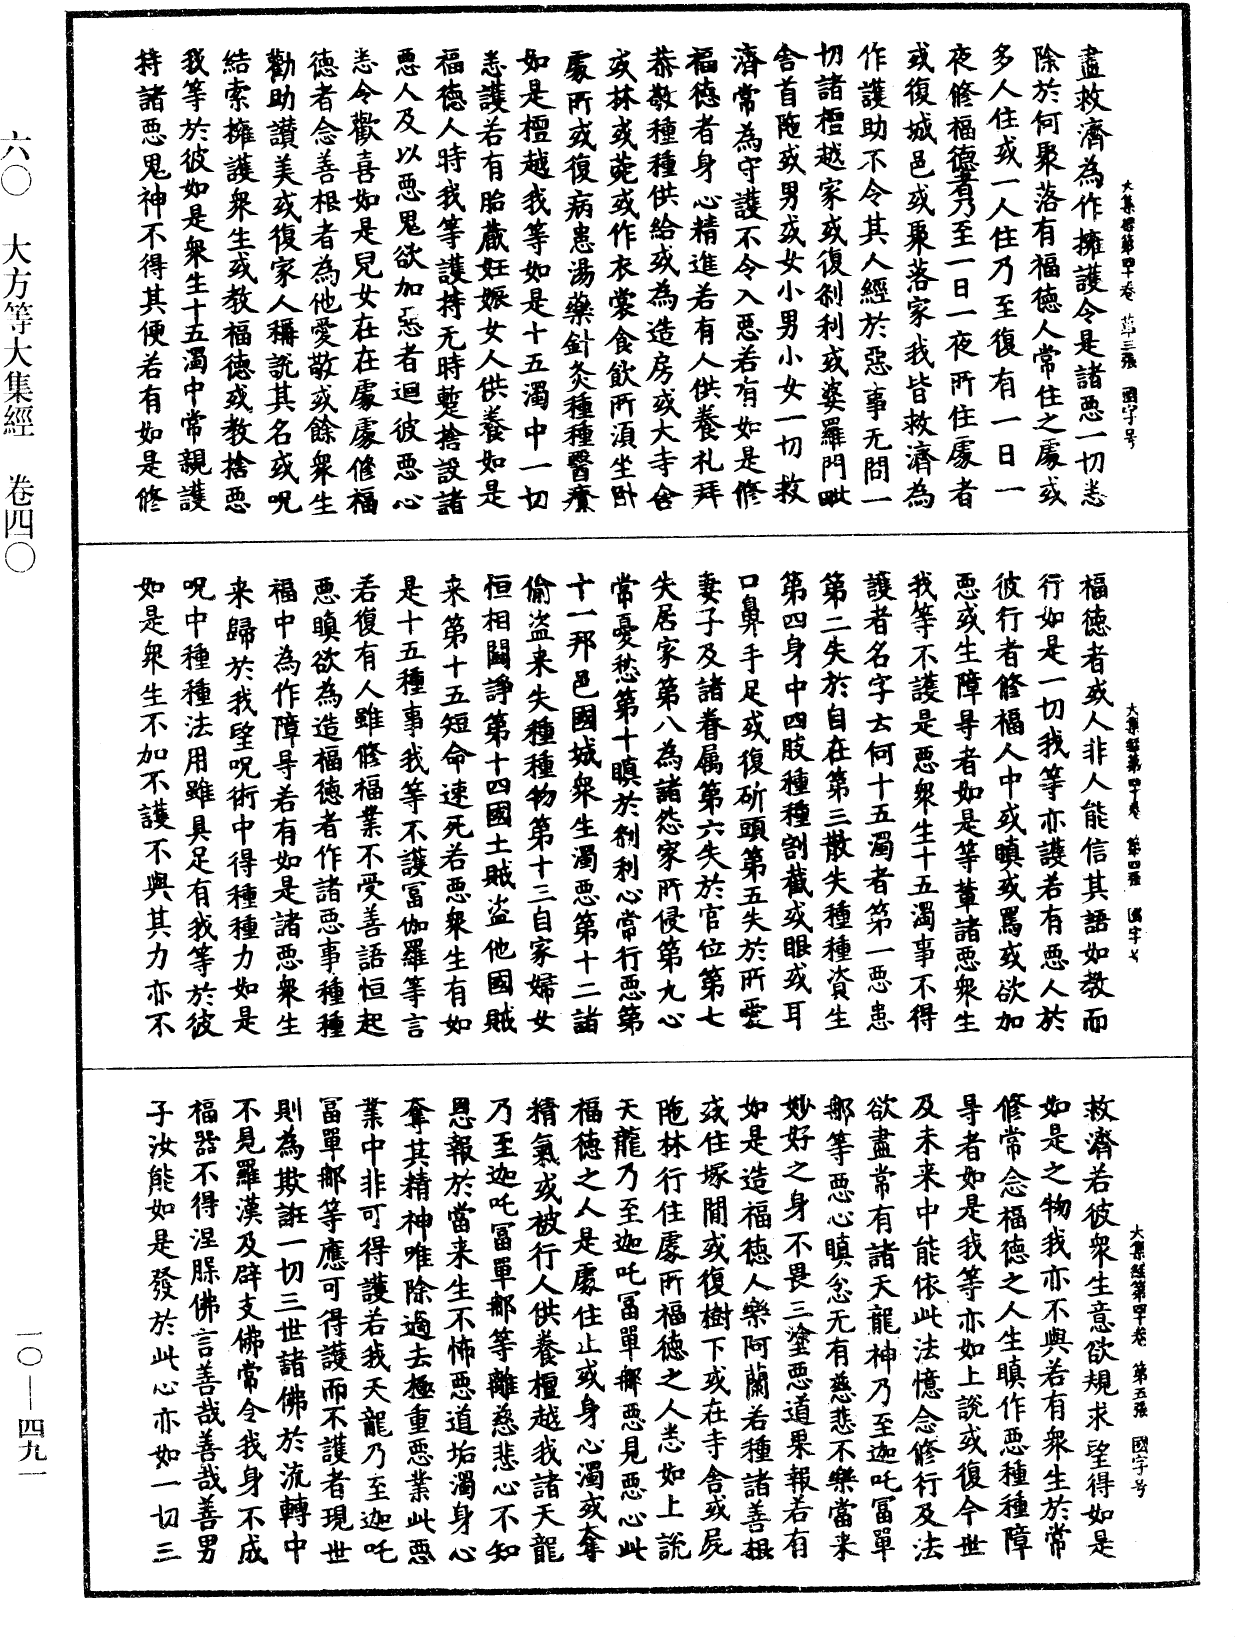 大集經第四十卷 第三張 國字号
盡救濟為作擁護令是諸惡一切悉
除於何聚落有福德人常住之處或
多人住或一人住乃至復有一日一
夜修福德者乃至一日一夜所住處者
或復城邑或聚落家我皆救濟為
作護助不令其人經於惡事无問一
切諸檀越家或復剎利或婆羅門毗
舍首陁或男或女小男小女一切救
濟常為守護不令入惡若有如是修
福德者身心精進若有人供養礼拜
恭敬種種供給或為造房或大寺舍
或林或菀或作衣裳食飲所須坐卧
處所或復病患湯藥針灸種種醫療
如是檀越我等如是十五濁中一切
悉護若有胎藏妊娠女人供養如是
福德人時我等護持无時蹔捨設諸
惡人及以惡鬼欲加惡者迴彼惡心
悉令歡喜如是兒女在在處處修福
德者念善根者為他愛敬或餘衆生
勸助讃美或復家人稱說其名或呪
結索擁護衆生或教福德或教捨惡
我等於彼如是衆生十五濁中常親護
持諸惡鬼神不得其便若有如是修
大集經第四十卷 第四張 國字号
福德者或人非人能信其語如教而
行如是一切我等亦護若有惡人於
彼行者修福人中或瞋或罵或欲加
惡或生障㝵者如是等輩諸惡衆生
我等不護是惡衆生十五濁事不得
護者名字云何十五濁者第一惡患
第二失於自在第三散失種種資生
第四身中四肢種種割截或眼或耳
口鼻手足或復斫頭第五失於所愛
妻子及諸眷属第六失於官位第七
失居家第八為諸怨家所侵第九心
常憂愁第十瞋於剎利心常行惡第
十一邦邑國城衆生濁惡第十二諸
偷盗来失種種物第十三自家婦女
恒相鬪諍第十四國土賊盗他國賊
来第十五短命速死若惡衆生有如
是十五種事我等不護冨伽羅等言
若復有人雖修福業不受善語恒起
惡瞋欲為造福德者作諸惡事種種
福中為作障㝵若有如是諸惡衆生
来歸於我望呪術中得種種力如是
呪中種種法用雖具足有我等於彼
如是衆生不加不護不與其力亦不
大集經第四十卷 第五張 國字号
救濟若彼衆生意欲規求望得如是
如是之物我亦不與若有衆生於常
修常念福德之人生瞋作惡種種障
㝵者如是我等亦如上說或復今世
及未来中能依此法憶念修行及法
欲盡常有諸天龍神乃至迦吒冨單
那等惡心瞋忿无有慈悲不樂當来
妙好之身不畏三塗惡道果報若有
如是造福德人樂阿蘭若種諸善根
或住塚間或復樹下或在寺舍或屍
陁林行住處所福德之人悉如上說
天龍乃至迦吒冨單那惡見惡心此
福德之人是處住止或身心濁或奪
精氣或被行人供養檀越我諸天龍
乃至迦吒冨單那等離慈悲心不知
恩報於當来生不怖惡道垢濁身心
奪其精神唯除過去極重惡業此惡
業中非可得護若我天龍乃至迦吒
冨單那等應可得護而不護者現世
則為欺誑一切三世諸佛於流轉中
不見羅漢及辟支佛常令我身不成
福器不得涅槃佛言善哉善哉善男
子汝能如是發於此心亦如一切三
六〇 大方等大集經 卷四〇
一〇—四九一